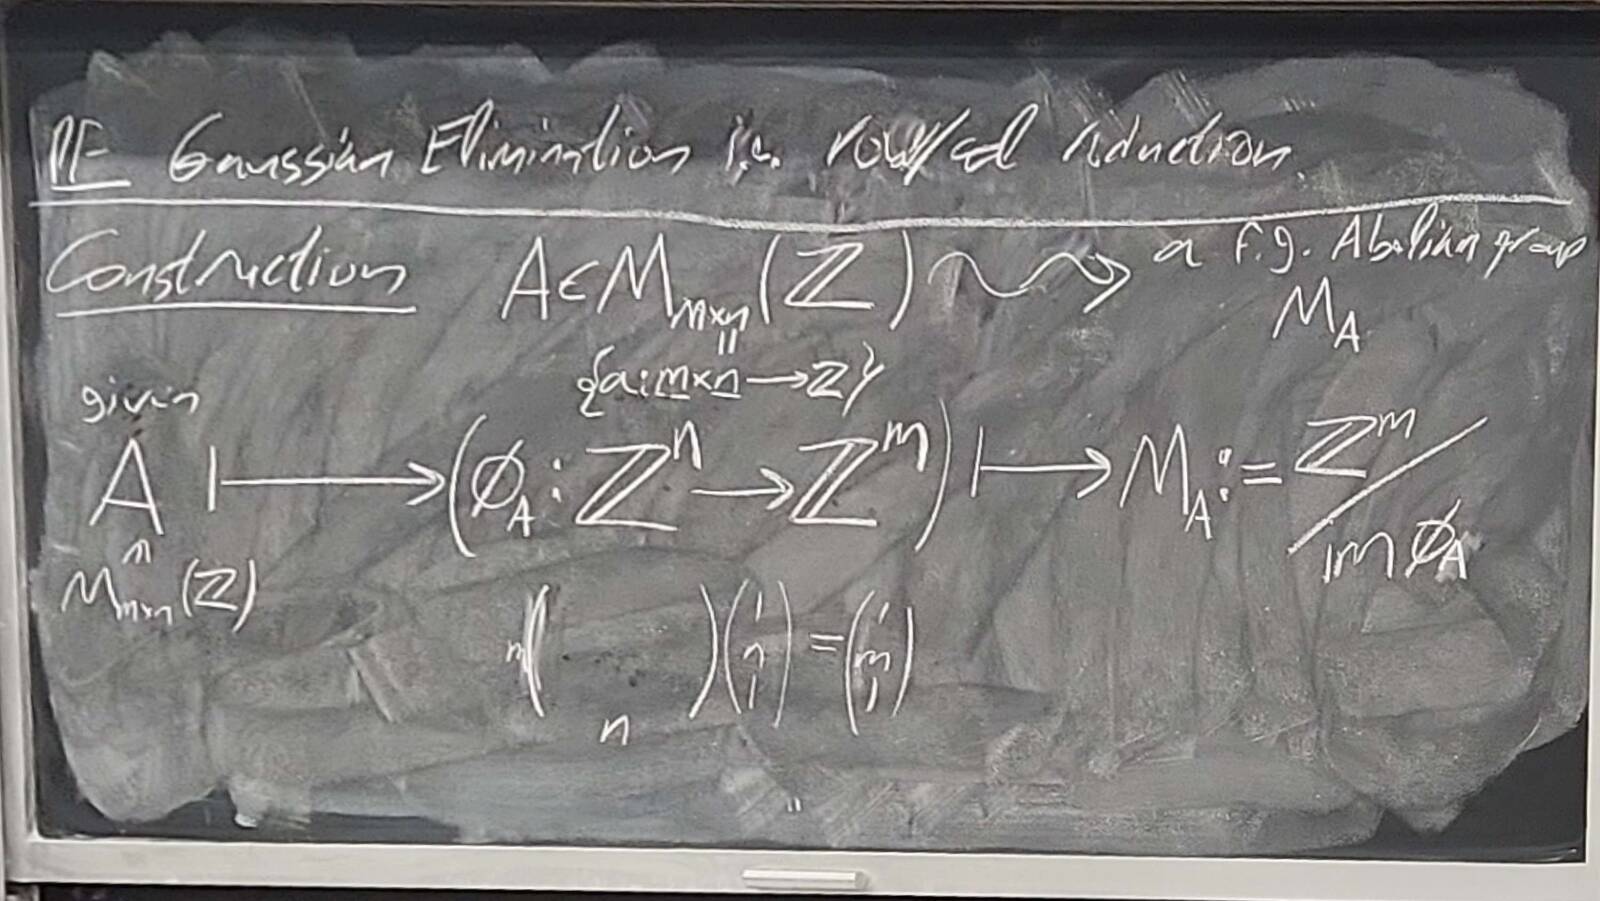 PF Gaussian Elimination i.e. row/col reduction.
Construction A∈M_{m×n}(ℤ) ⇝ a f.g. Abelian group M_A
{a: m×n → ℤ}
given
A ↦ (ϕ_A : ℤⁿ → ℤᵐ) ↦ M_A := ℤᵐ / im ϕ_A
∩
M_{m×n}(ℤ)
m( )(n) = (m)
n